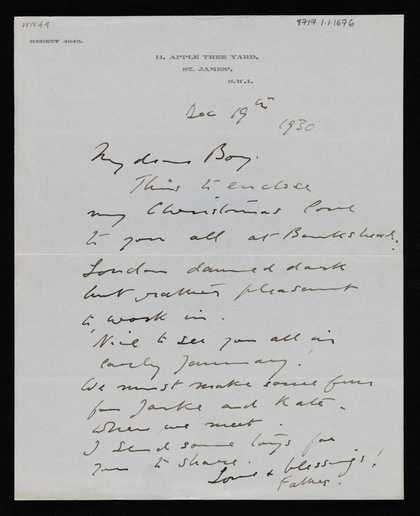 8717.1.1.1676
REGENT 4349.
11, APPLE TREE YARD,
ST. JAMES',
S.W.1.
Dec 19th
1930
My dear Boy.
This to enclose
my Christmas love
to you all at Bankshead.
London damned dark
but rather pleasant
to work in.
Nice to see you all in
early January!
We must make some fun
for Jake and Kate.
when we meet.
I send some toys for
you to share.
Love & blessings!
Father.